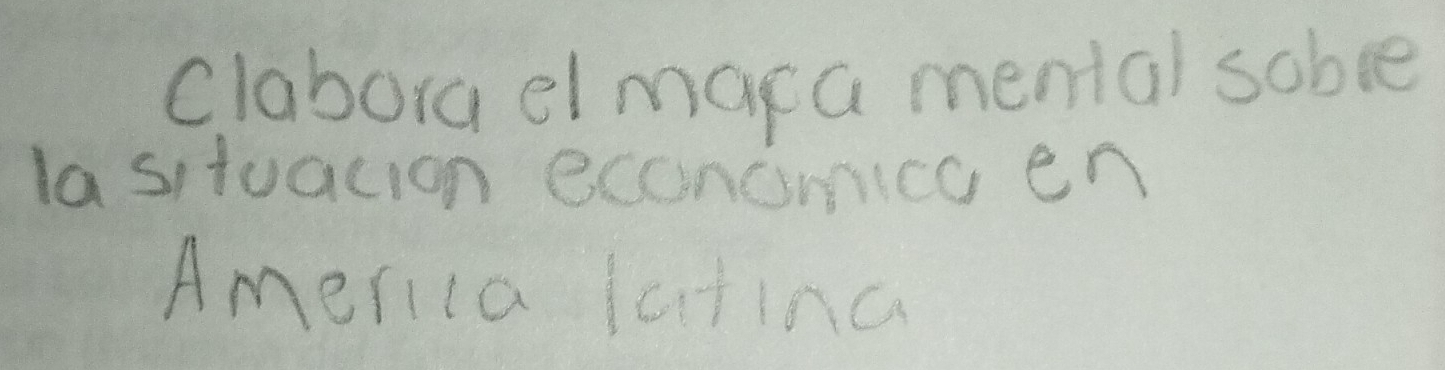 Elabora el mapa mental sobre
la situacion economica en
America latina